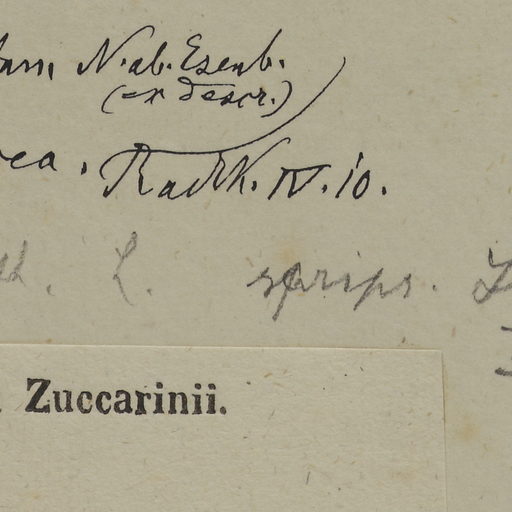 N. ab. Esenb.
(ex descr.)
Radlk. IV. 10.
L. scrips.
Zuccarinii.